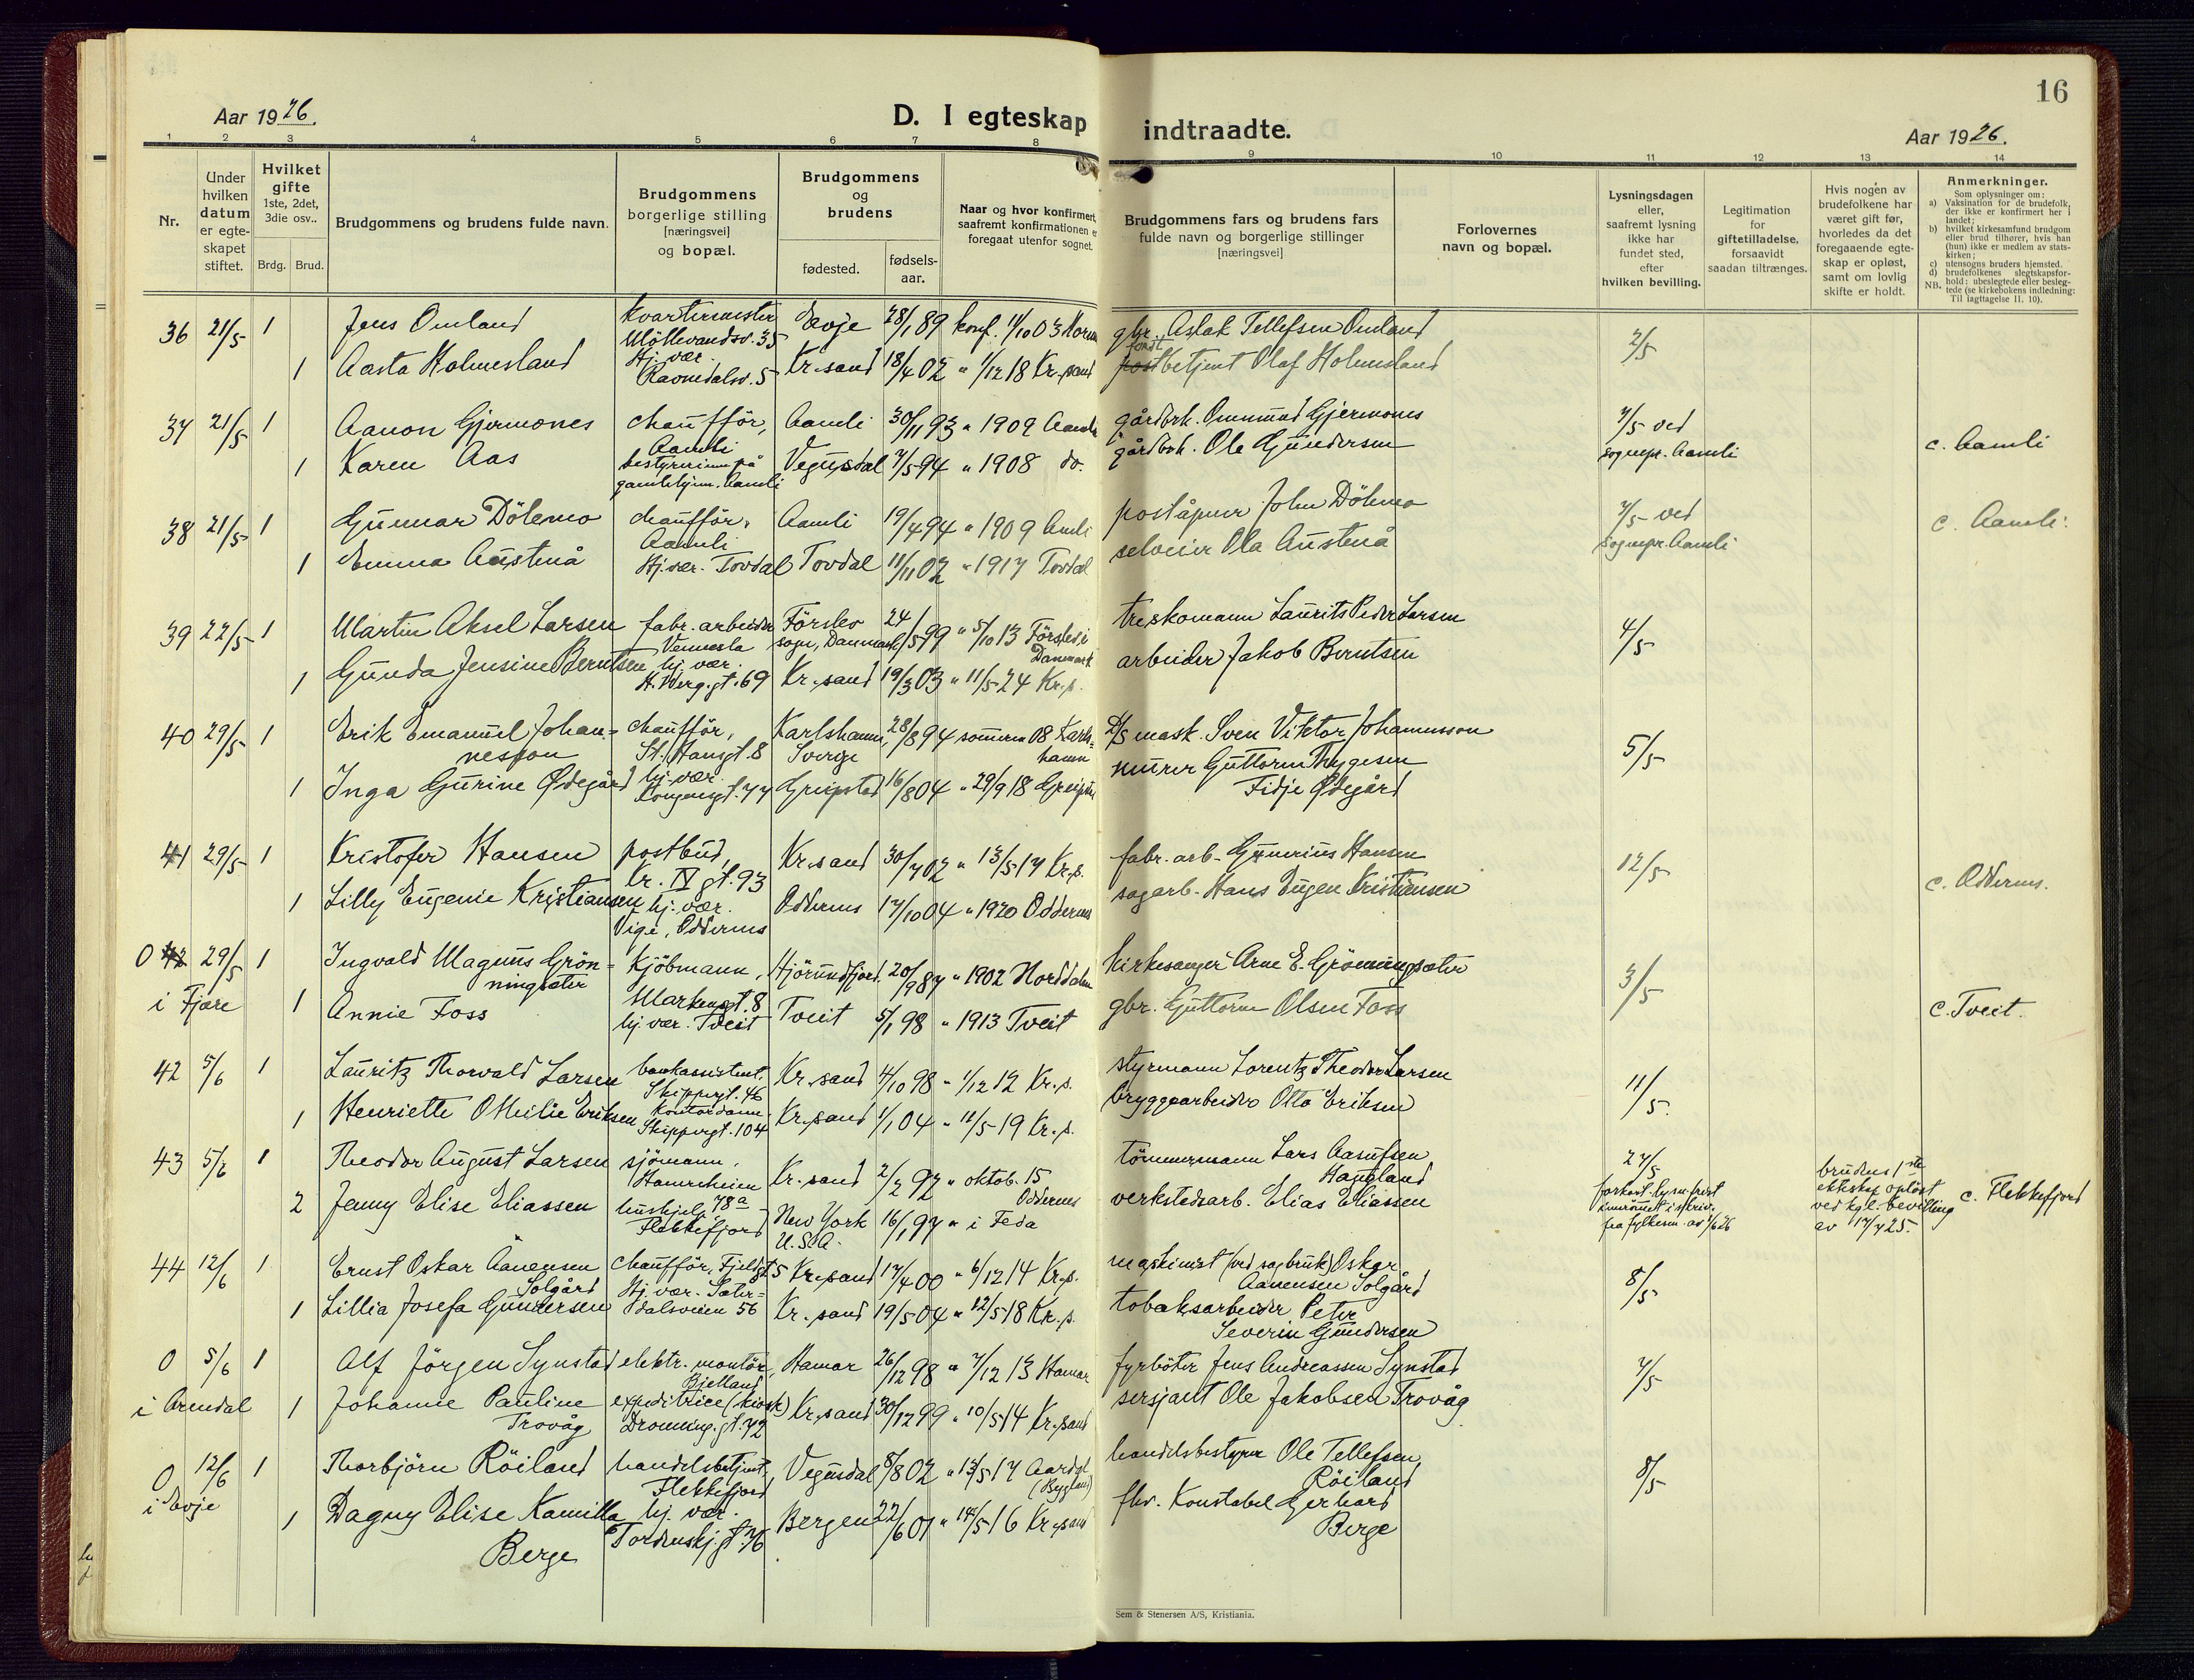 16
Aar 1926.
D. I egteskap indtraadte.
Aar 1926.
1 2 3 4 5 6 7 8 9 10 11 12 13 14
Nr.
Under hvilken datum er egte-skapet stiftet.
Hvilket gifte 1ste, 2det, 3die osv..
Brdg. Brud.
Brudgommens og brudens fulde navn.
Brudgommens borgerlige stilling [næringsvei] og bopæl.
Brudgommens og brudens
fødested.
fødsels-aar.
Naar og hvor konfirmert, saafremt konfirmationen er foregaat utenfor sognet.
Brudgommens fars og brudens fars fulde navn og borgerlige stillinger [næringsvei]
Forlovernes navn og bopæl.
Lysningsdagen eller, saafremt lysning ikke har fundet sted, efter hvilken bevilling.
Legitimation for giftetilladelse, forsaavidt saadan tiltrænges.
Hvis nogen av brudefolkene har været gift før, hvorledes da det foregaaende egte-skap er opløst, samt om lovlig skifte er holdt.
Anmerkninger.
Som oplysninger om:
a) Vaksination for de brudefolk, der ikke er konfirmert her i landet;
b) hvilket kirkesamfund brudgom eller brud tilhører, hvis han (hun) ikke er medlem av stats-kirken;
c) utensogns bruders hjemsted.
d) brudefolkenes slegtskapsfor-hold: ubeslegtede eller besleg-tede (se kirkebokens indledning: NB. Til iagttagelse II. 10).
36 21/5 1 Jens Omland Kvartermester Möllevandsv. 35 Evje 28/1 89 konf. 11/10 03 gbr. Aslak Tellefsen Omland 2/5
1 Aasta Holmesland Hj. vær. Ravnedalsv. 5 Kr.sand 18/4 02 " 1/12 18 Kr.sand postbetjent Olaf Holmesland
37 21/5 1 Aanon Gjermones chaufför, Aamli Aamli 30/11 93 " 1909 Aamli gårdbrk. Ommund Gjermones 7/5 ved sognepr. Aamli c. Aamli
1 Karen Aas bestyrerinne på gamlehjem. Aamli Vegusdal 7/5 94 " 1908 do. gårdbrk. Ole Gundersen
38 21/5 1 Gunnar Dölemo chaufför, Aamli Aamli 19/4 94 " 1909 Amli poståpner John Dölemo 7/5 ved sognepr. Aamli c. Aamli.
1 Emma Austenå Hj. vær. Tovdal Tovdal 11/11 02 " 1917 Tovdal selveier Ola Austenå
39 22/5 1 Martin Aksel Larsen fabr. arbeider Vennesla Förslev sogn, Danmark 24/5 99 " 5/10 13 Förslev i Danmark treskomann Laurits Peder Larsen 4/5
1 Gunda Jensine Berntsen hj. vær. H. Werg.gt. 69 Kr.sand 19/3 03 " 11/5 24 Kr.s. arbeider Jakob Berntsen
40 29/5 1 Erik Emanuel Johan=nesson chaufför, St. Hansgt. 8 Karlshamn, Sverge 28/8 94 sommeren 08 Karls=hamn mask. Sven Viktor Johannesson 5/5
1 Inga Gurine Ødegård hj. vær. Kongensgt. 77 Greipstad 16/8 04 " 29/9 18 murer Guttorm Thygesen Fidje Ødegård
41 29/5 1 Kristofer Hansen postbud, Kr. IV gt. 93 Kr.sand 30/7 02 " 13/5 17 Kr.s. fabr. arb. Gunerius Hansen 12/5 c. Oddernes.
1 Lilly Eugenie Kristiansen hj. vær. Vige, Oddernes Oddernes 17/10 04 " 1920 Oddernes sagarb. Hans Eugen Kristiansen
0 42 29/5 1 Ingvald Magnus Grön=ningsæter Kjöbmann, Markensgt. 8 Hjörundfjord. 20/9 87 " 1902 Norddalen kirkesanger Arne E. Grönningsæter 3/5
i Fjære 1 Annie Foss hj. vær. Tveit Tveit 5/1 98 " 1913 Tveit gbr. Guttorm Olsen Foss c. Tveit.
42 5/6 1 Lauritz Thorvald Larsen bankassistent, Skippergt. 46 Kr.sand 4/10 98 " 1/12 12 Kr.s. styrmann Lorentz Theodor Larsen 11/5.
1 Henriette Otteilie Eriksen Kontordame Skippergt. 104 Kr.sand 1/1 04 " 11/5 19 Kr.s. bryggearbeider Otto Eriksen
43 5/6 1 Theodor August Larsen sjömann, Kr.sand 2/2 92 " oktob. 15 Oddernes tömmermann Lars Aasulfsen Haugland 27/5
2 Jenny Elise Eliassen hushjelp Flekkefjord New York U.S.A. 16/1 97 " i Feda verkstedsarb. Elias Eliassen brudens 1ste ekteskap oplöst ved kgl. bevilling av 17/7 25. c. Flekkefjord
44 12/6 1 Ernst Oskar Aanensen Solgård chaufför, Kr.sand 17/4 00 " 6/12 14 Kr.s. maskinist (ved sagbruk) Oskar Aanensen Solgård 8/5
1 Lillia Josefa Gundersen Hj. vær. Sæter=dalsveien 56 Kr.sand 19/5 04 " 12/5 18 Kr.s. tobaksarbeider Peter Severin Gundersen
0 5/6 1 Alf Jörgen Synstad elektr. montör, Bjelland Hamar 26/12 98 " 7/12 13 Hamar fyrböter Jens Andreassen Synstad 7/5
i Arendal 1 Johanne Pauline Trovåg expeditrice (kiosk) Dronning.gt. 72 Kr.sand 30/12 99 " 10/5 14 Kr.sand sersjant Ole Jakobsen Trovåg
0 12/6 1 Thorbjörn Röiland handelsbetjent, Flekkefjord Vegusdal 8/8 02 " 13/5 17 (Bygland) handelsbestyrer Ole Tellefsen Röiland 8/5
i Evje 1 Dagny Elise Kamilla Berge hj. vær. Tordenskj.gt. 76 Bergen 22/6 01 " 14/5 16 Kr.sand fhv. Konstabel Gerhard Berge
Sem & Stenersen A/S, Kristiania.